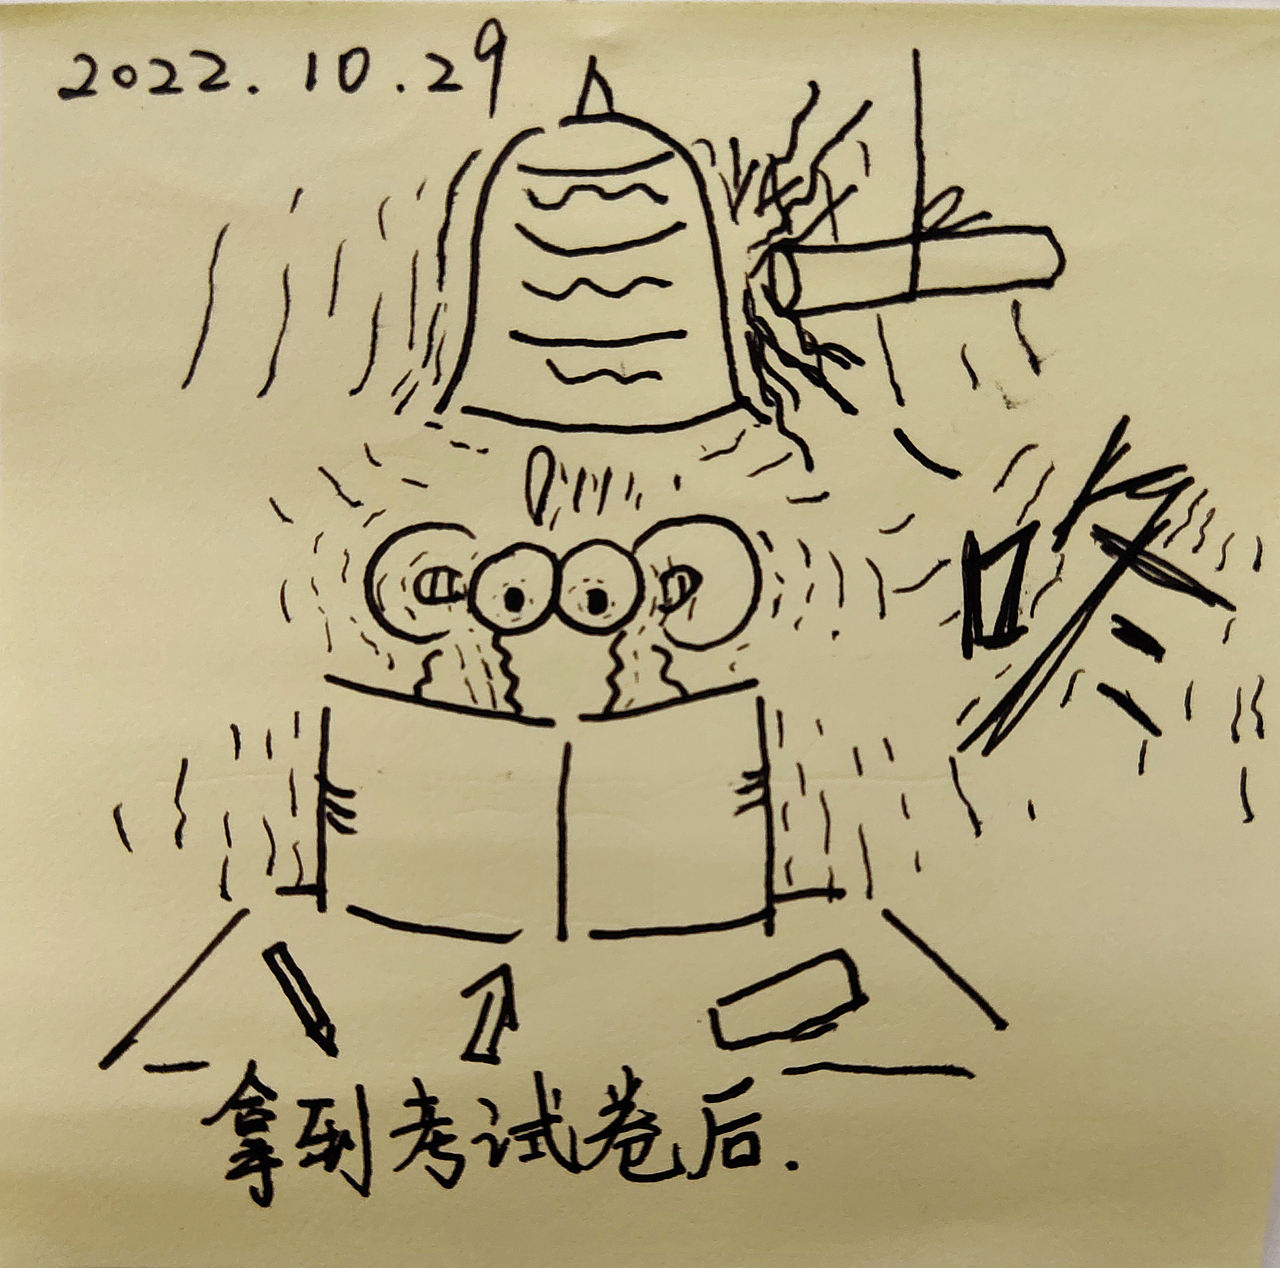 2022.10.29
咚
拿到考试卷后.